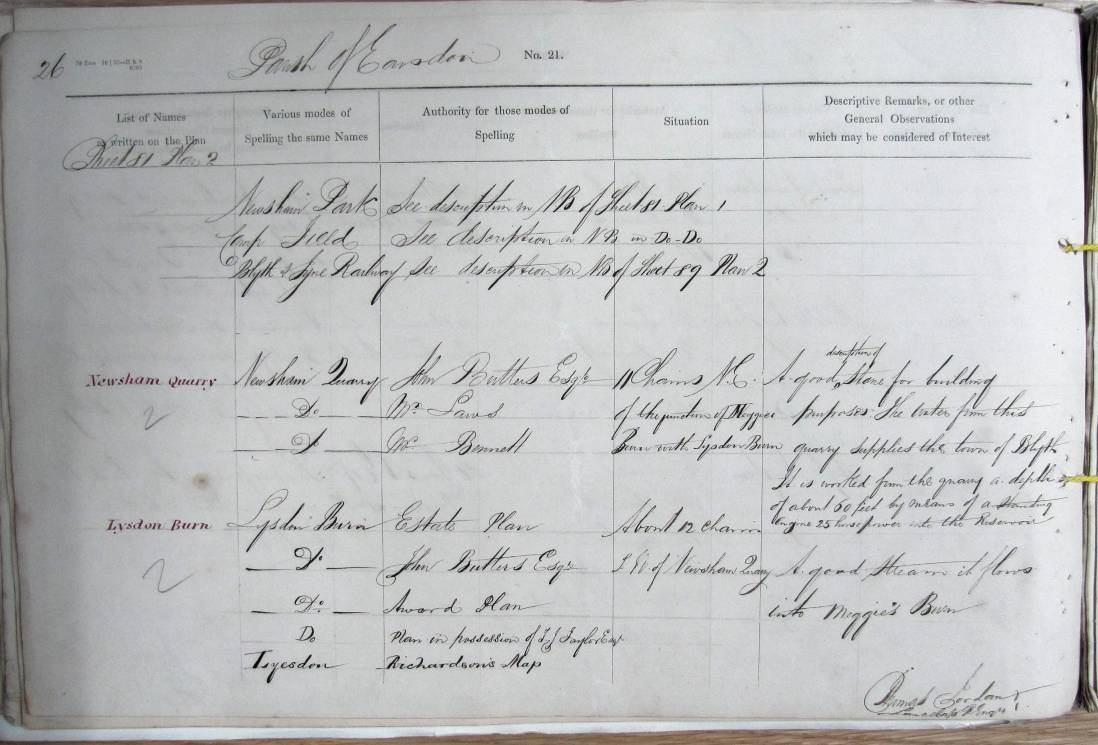 26
Parish of Earsdon No. 21.
List of Names
as written on the Plan
Various modes of
Spelling the same Names
Authority for those modes of
Spelling
Situation
Descriptive Remarks, or other
General Observations
which may be considered of Interest
Sheet 81 Plan 2
Newsham Park See description in NB of Sheet 81 Plan 1
Camp Field See description in NB in Do-Do
Blyth & Tyne Railway See description in NB of Sheet 89 Plan 2
Newsham Quarry Newsham Quarry John Butters Esqr 11 Chains N.E. A good description of Stone for building
Do Mr Laws of the junction of Meggies purposes. The water from this
Do Mr Bennett Burn with Lysdon Burn quarry supplies the town of Blyth
2
It is worked from the quarry a depth
of about 60 feet by means of a Standing
Engine 25 horse power into the Reservoir
Lysdon Burn Lysdon Burn Estate Plan About 12 chains
Do John Butters Esqr S.W. of Newsham Quarry A good stream it flows
2
Do Award Plan into Meggie's Burn
Do Plan in possession of T.J. Taylor Esqr
Lyesdon Richardson's Map